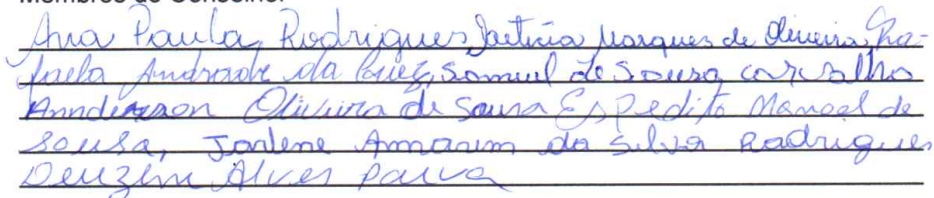 Membros do Conselho:
Ana Paula Rodrigues, Letícia Marques de Oliveira, Ra-
faela Andrade da Cruz, Samuel de Sousa carvalho
Annderson Oliveira de Sousa Espedito Manoel de
Sousa, Jarlene Amorim da Silva Rodrigues
Deuzeni Alves Paiva